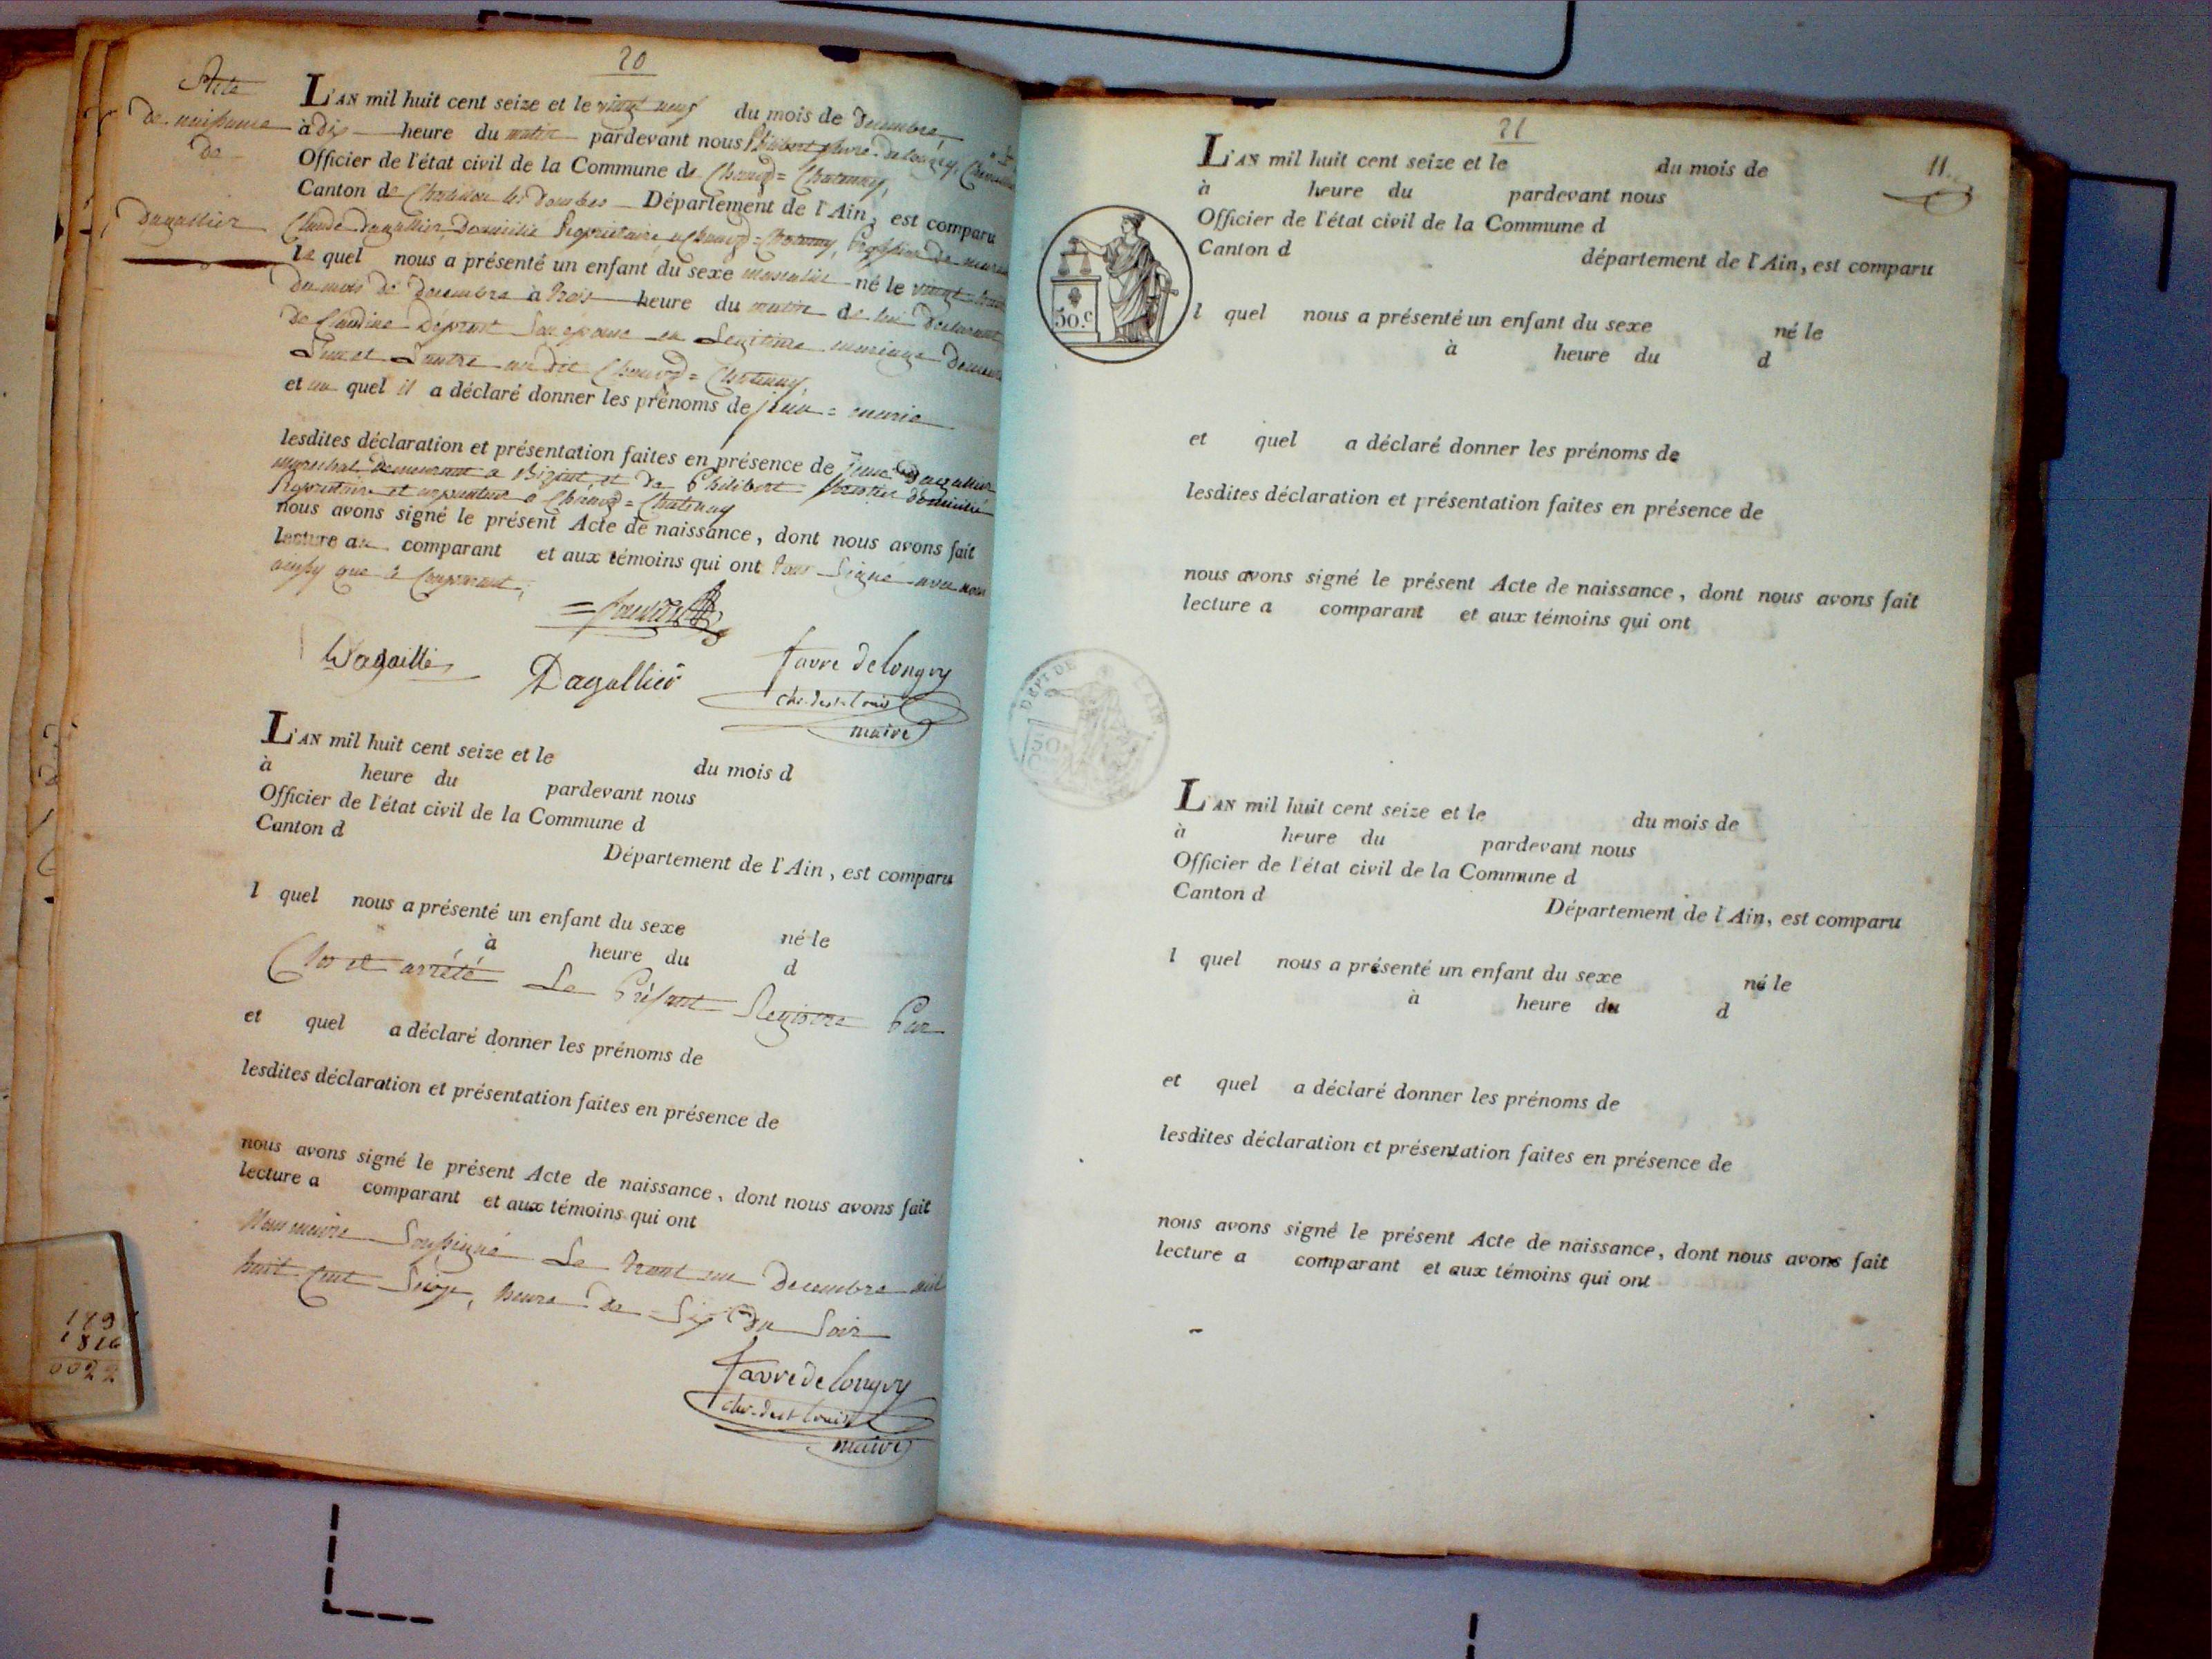 20
Acte
de naissance
de
Dagallier
L'AN mil huit cent seize et le vingt neuf du mois de Decembre
à dix heure du matin pardevant nous Philibert favre de longry,
Officier de l'état civil de la Commune de Chanoz=Chatenay,
Canton de Chatillon les Dombes Département de l'Ain, est comparu
Claude Dagallier, Domicilié Proprietaire a Chanoz=Chatenay, Profession de
le quel nous a présenté un enfant du sexe masculin né le vingt
du mois de Decembre à trois heure du matin de lui declarant
de Claudine son epouse en Legitime mariage
L'un et L'autre au dit Chanoz=Chatenay,
et au quel il a déclaré donner les prénoms de jean=marie
lesdites déclaration et présentation faites en présence de Dagallier
marechal demeurant a et de Philibert domicilié
Proprietaire et a Chanoz=Chatenay
nous avons signé le présent Acte de naissance, dont nous avons fait
lecture au comparant et aux témoins qui ont tous signé avec nous
ainsy que le Comparant,
Dagallier
favre de longry
chr. de st. louis
maire
L'AN mil huit cent seize et le du mois d
à heure du pardevant nous
Officier de l'état civil de la Commune d
Canton d
Département de l'Ain, est comparu
l quel nous a présenté un enfant du sexe né le
à heure du d
Clos et arrété Le Présent Registre Par
et quel a déclaré donner les prénoms de
lesdites déclaration et présentation faites en présence de
nous avons signé le présent Acte de naissance, dont nous avons fait
lecture a comparant et aux témoins qui ont
Nous maire Soussigné Le trent un Decembre mil
huit Cent Seize, heure de Six du Soir
favre de longry
chr. de st louis
maire
1816
0022
21
11.
L'AN mil huit cent seize et le du mois de
à heure du pardevant nous
Officier de l'état civil de la Commune d
Canton d département de l'Ain, est comparu
50.c
l quel nous a présenté un enfant du sexe né le
à heure du d
et quel a déclaré donner les prénoms de
lesdites déclaration et présentation faites en présence de
nous avons signé le présent Acte de naissance, dont nous avons fait
lecture a comparant et aux témoins qui ont
DEPT DE L'AIN
L'AN mil huit cent seize et le du mois de
à heure du pardevant nous
Officier de l'état civil de la Commune d
Canton d Département de l'Ain, est comparu
l quel nous a présenté un enfant du sexe né le
à heure du d
et quel a déclaré donner les prénoms de
lesdites déclaration et présentation faites en présence de
nous avons signé le présent Acte de naissance, dont nous avons fait
lecture a comparant et aux témoins qui ont